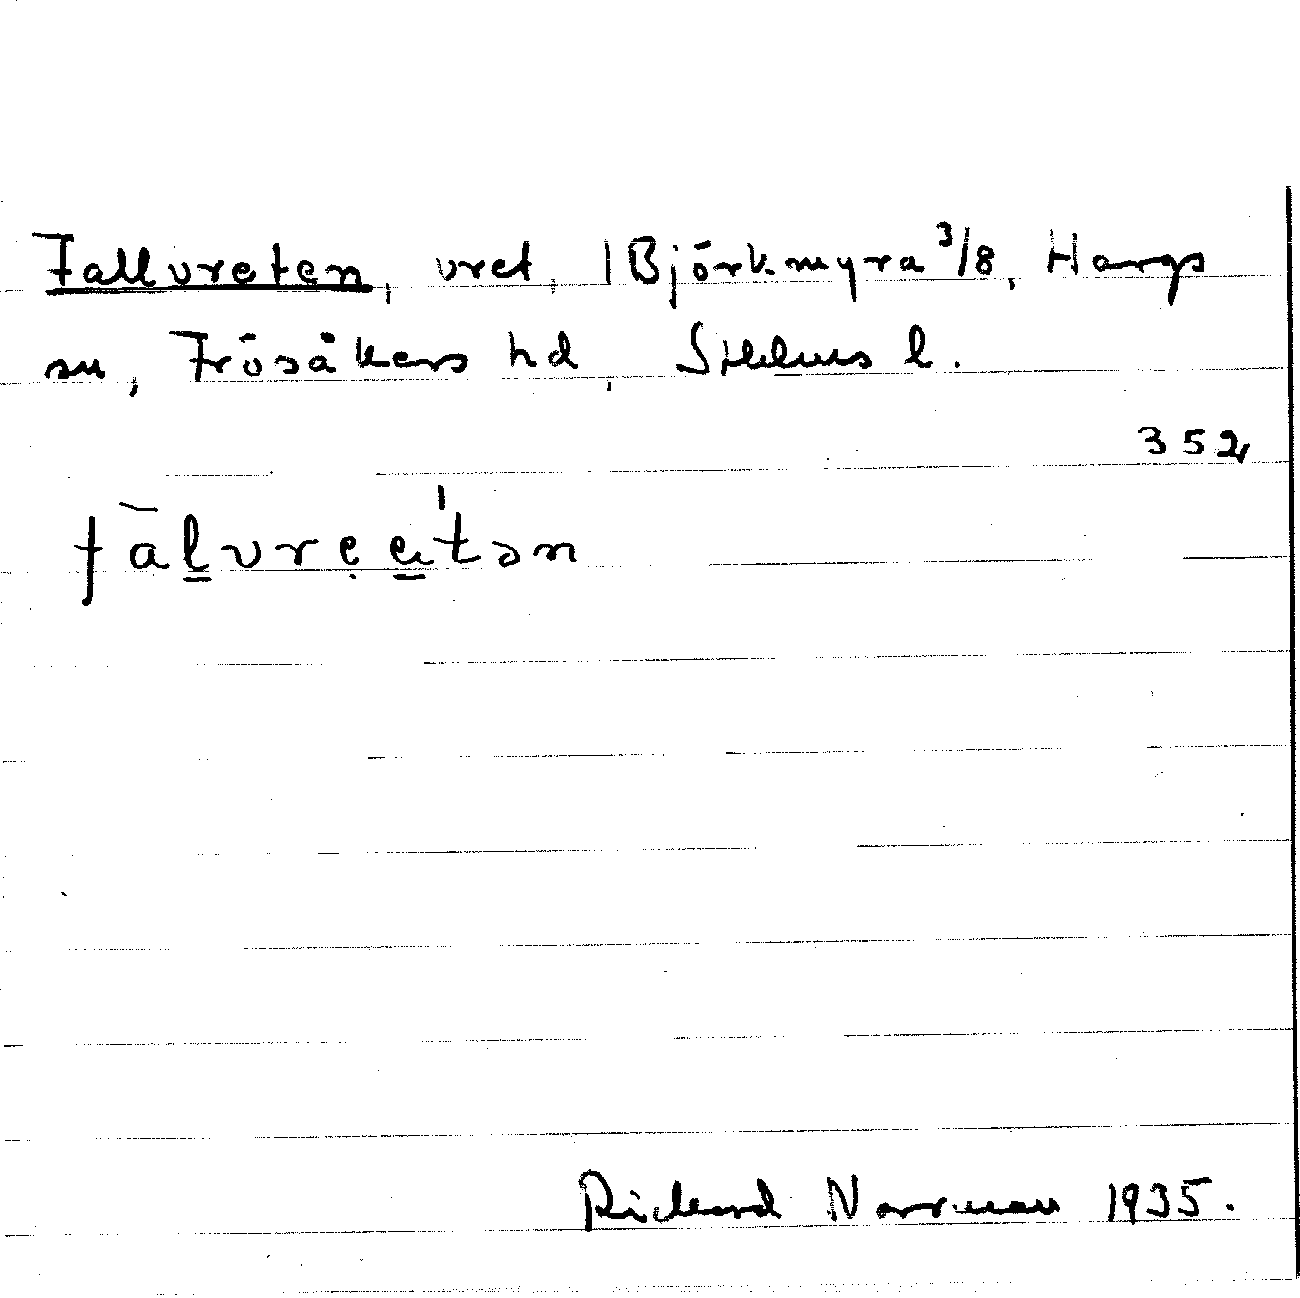 Fallvreten, vret, 1 Björkmyra 3/8, Hargs
sn, Frösåkers hd, Sthlms l.
352
fàl̲vrẹe̲'tən
Rickard Norrman 1935.